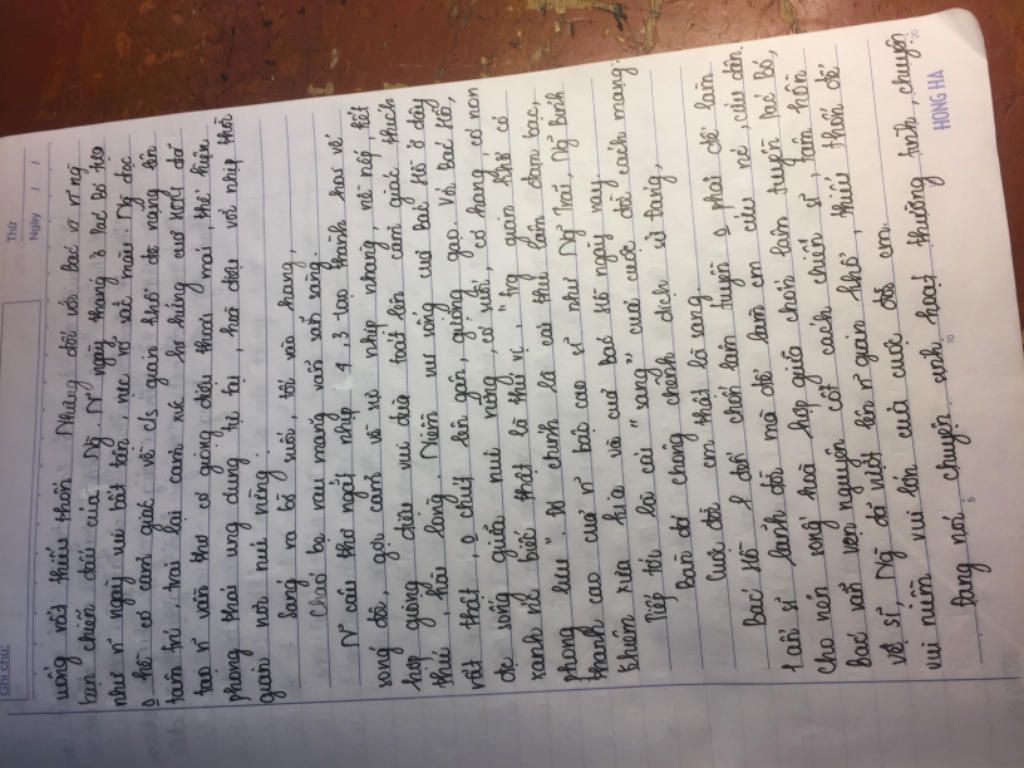 Thứ
Ngày / /
Ghi chú:
uống rất thiếu thốn. Nhưng đối với Bác n~ ng
bạn chiến đấu của Ng. N~ ngày tháng ở Pác Bó
như n~ ngày vui bất tận, nức nở sắt máu. Ng đọc
o hồ có cảm giác về c/s gian khổ đè nặng lên
tâm trí, trái lại cảm xúc hư hứng
tạo n~ vần thơ có giọng điệu thoải mái, thể hiện
phong thái ung dung tự tại, hoà điệu với nhịp
quan nơi núi rừng.
Sáng ra bờ suối, tối vào hang,
Cháo bẹ rau măng vẫn sẵn sàng.
N~ câu thơ ngắt nhịp 4, 3 tạo thành hai vế
song đôi, gợi cảm về sự nhịp nhàng, nề nếp, kết
hợp giọng điệu vui đùa toát lên cảm giác thích
thú, hài lòng. Niềm vui sống của Bác Hồ ở đây
rất thật, o chút lên gân, gượng gạo. Với Bác Hồ,
đc sống giữa núi rừng, có suối, có hang, có non
xanh nc biếc thật là thú vị, "trg gian khổ có
phong lưu". Đó chính là cái thú lâm
thanh cao của n~ bậc cao sĩ như Ng Trãi, Ng Bỉnh
Khiêm xưa kia và của Bác Hồ ngày nay.
Tiếp tới là cái "sang" của cuộc đời cách mạng:
Bàn đá chông chênh dịch sử Đảng,
Cuộc đời cm thật là sang.
Bác Hồ đến chốn lâm tuyền o phải để làm
1 ẩn sĩ lánh đời mà để làm cm cứu nc, cứu dân.
Cho nên sống hoà hợp giữa chốn lâm tuyền Pác Bó,
Bác vẫn vẹn nguyên cốt cách chiến sĩ, tâm hồn
vệ sĩ, Ng đã vượt lên n~ gian khổ, thiếu thốn để
vui niềm vui lớn của cuộc đời cm.
giọng nói, chuyện sinh hoạt thường tình, chuyện
5
10
20
HONG HA